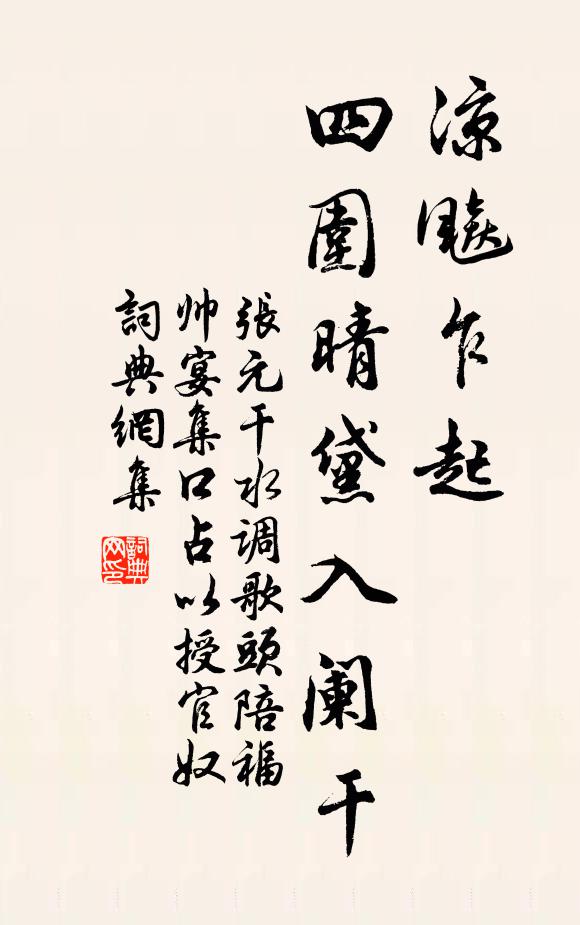 凉飚乍起
四圍晴黛入阑干
張元干水调歌頭陪福
帅宴集口占以授官奴
詞典網集
詞典
网印